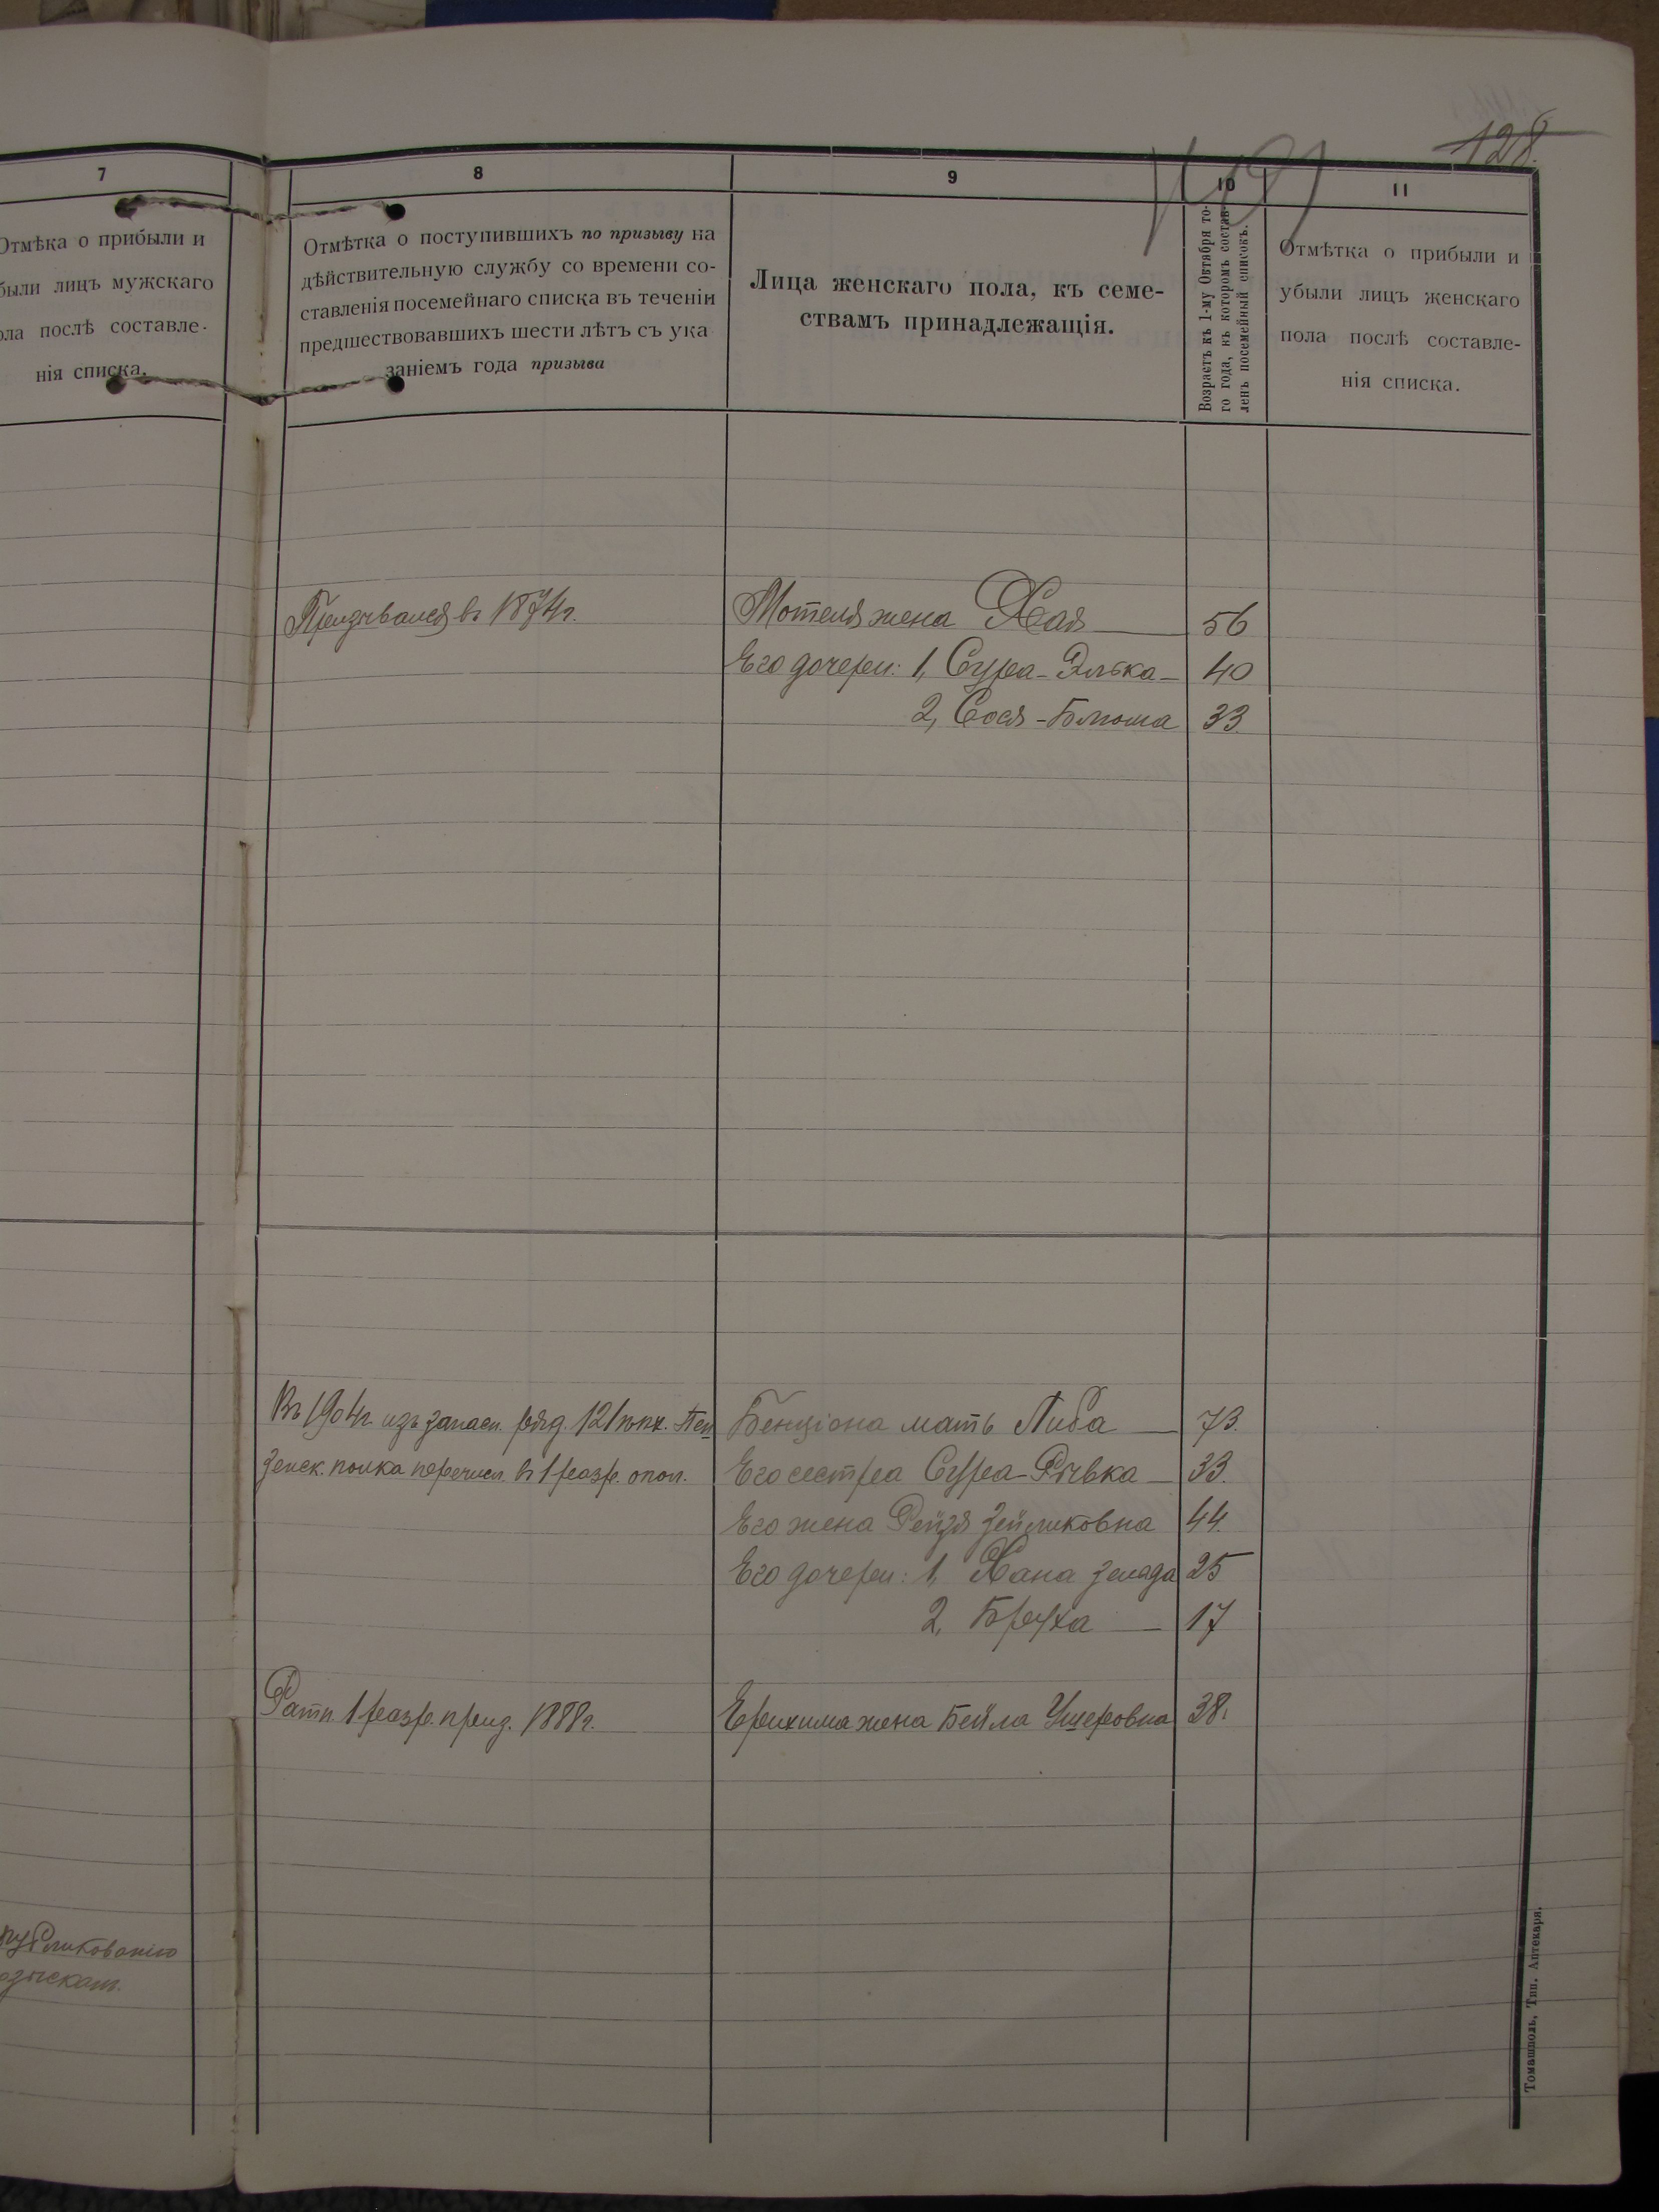 128.
7
8
9
10
11
Отмѣка о прибыли и
были лицъ мужскаго
ола послѣ составле-
нія списка.
Отмѣтка о поступившихъ по призыву на
дѣйствительную службу со времени со-
ставленія посемейнаго списка въ теченіи
предшествовавшихъ шести лѣтъ съ ука
заніемъ года призыва
Лица женскаго пола, къ семе-
ствамъ принадлежащія.
Возрастъ къ 1-му Октября то-
го года, въ которомъ состав-
ленъ посемейный списокъ.
Отмѣтка о прибыли и
убыли лицъ женскаго
пола послѣ составле-
нія списка.
Призывался въ 1874 г.
Мотеля жена Хая 56
Его дочери: 1, Сура-Элька 40
2, Сося-Блюма 33.
Въ 1904 г. изъ запасн. ряд. 121 пѣх. Пен
зенск. полка перечисл. въ 1 разр. опол.
Бенціона мать Либа 73.
Его сестра Сура-Рывка 33.
Его жена Рейзя Зейликовна 44.
Его дочери: 1, Хана Злада 25
2, Бруха 17
Ратн. 1 разр. приз. 1888 г.
Ерихима жена Бейла Ушеровна 38.
публикованію
озыскат.
Томашполь, Тип. Аптекаря.